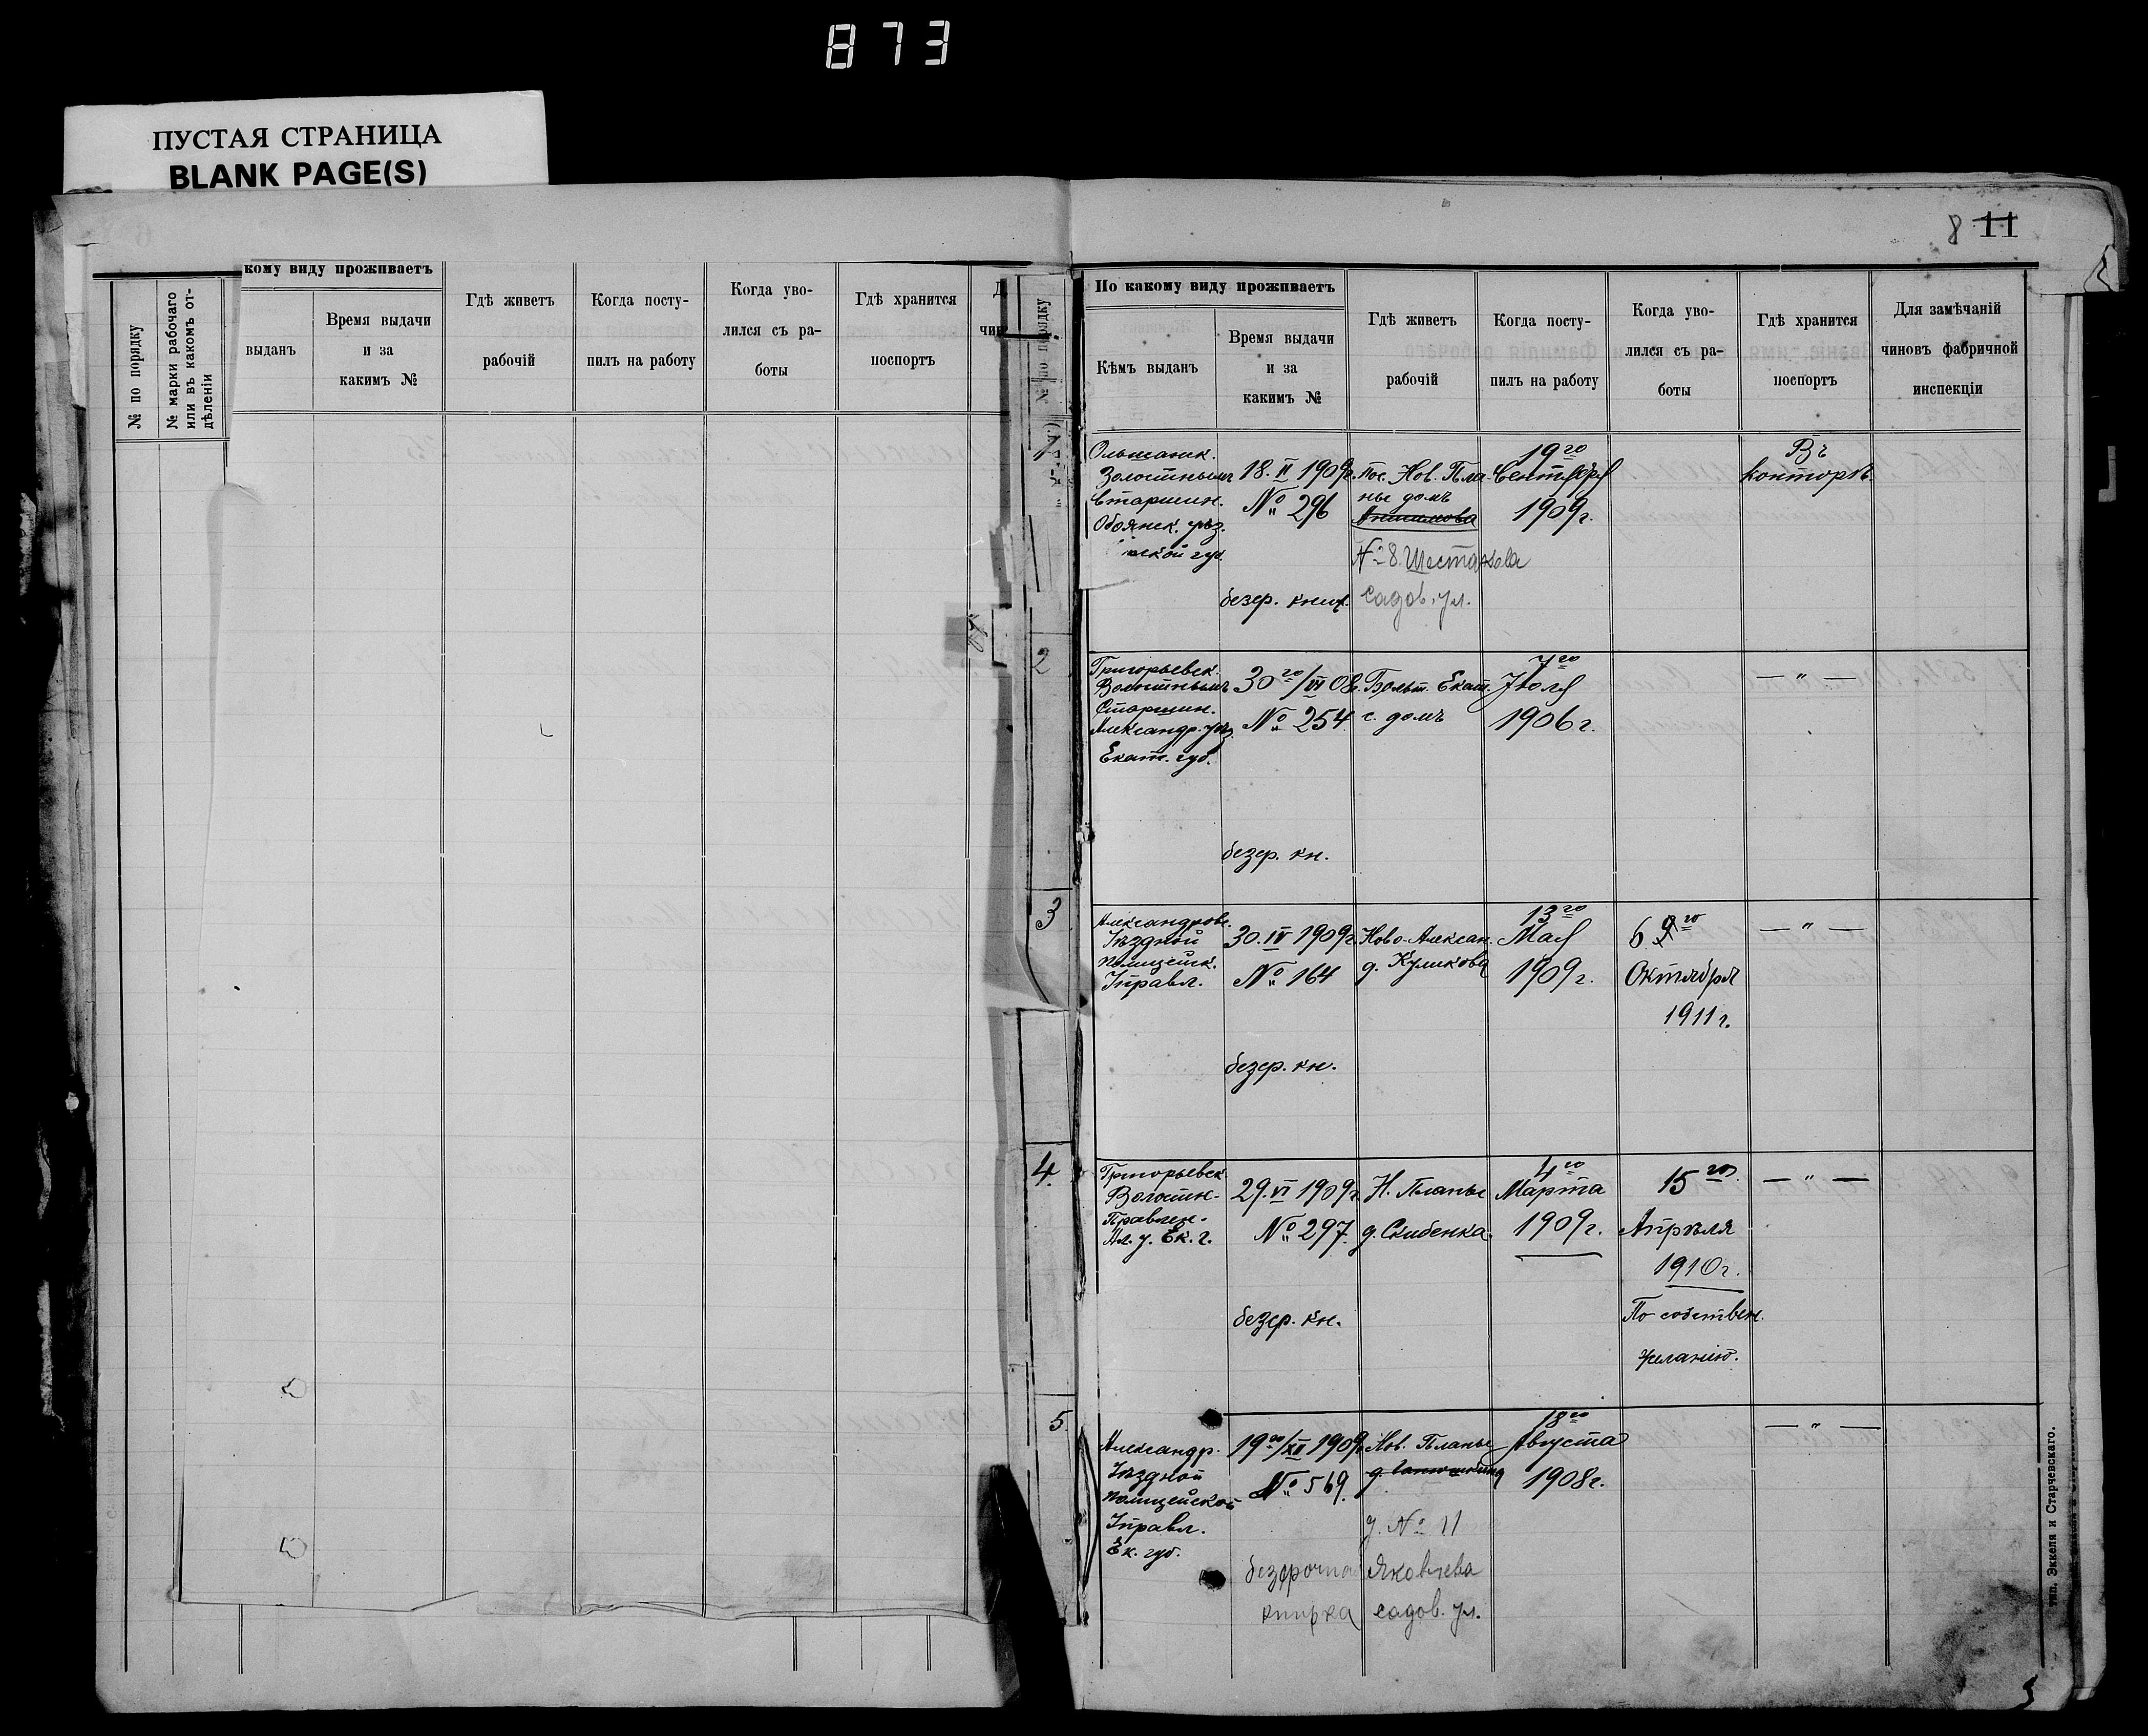 873
ПУСТАЯ СТРАНИЦА
BLANK PAGE(S)
8 11
№ по порядку
№ марки рабочаго или въ какомъ от-
дѣленіи
кому виду проживаетъ
выданъ
Время выдачи
и за
какимъ №
Гдѣ живетъ
рабочій
Когда посту-
пилъ на работу
Когда уво-
лился съ ра-
боты
Гдѣ хранится
поспортъ
№ по порядку
По какому виду проживаетъ
Кѣмъ выданъ
Время выдачи
и за
какимъ №
Гдѣ живетъ
рабочій
Когда посту-
пилъ на работу
Когда уво-
лился съ ра-
боты
Гдѣ хранится
поспортъ
Для замѣчаній
чиновъ фабричной
инспекціи
1
Ольшанск.
Волостнымъ
Старшин.
Обоянск. уѣз.
ской губ.
18.II 1909г.
№ 296
безср. книж.
Пос. Нов. Пла
нье домъ
№ 8 Шестакова
садов. ул.
19го
Сентября
1909г.
Въ
конторѣ
2
Григорьевск.
Волостнымъ
Старшин.
Александр. уѣз.
Екат. губ.
30го/VI 08г.
№ 254
безср. кн.
Больш. Екат.
с. домъ
7го
Іюля
1906г.
— " —
3
Александровс.
Уѣздной
Полицейск.
Управл.
30.IV 1909г.
№ 164
безср. кн.
Ново-Алексан.
д. Куликова
13го
Мая
1909г.
6 9го
Октября
1911г.
— " —
4.
Григорьевск.
Волостн.
Правлен.
Ал. у. Ек. г.
29.VI 1909г.
№ 297.
безср. кн.
Н. Планье
д. Скибенка.
4го
Марта
1909г.
15го
Апрѣля
1910г.
По собствен.
желанію.
— " —
5.
Александр.
Уѣздной
Полицейской
Управл.
Ек. губ.
19го/XII 1909г.
№ 569.
безсрочная
книжка
Нов. Планье
д. № 11
Яковлева
садов. ул.
18го
Августа
1908г.
— " —
тип. Эккеля и Старчевскаго.